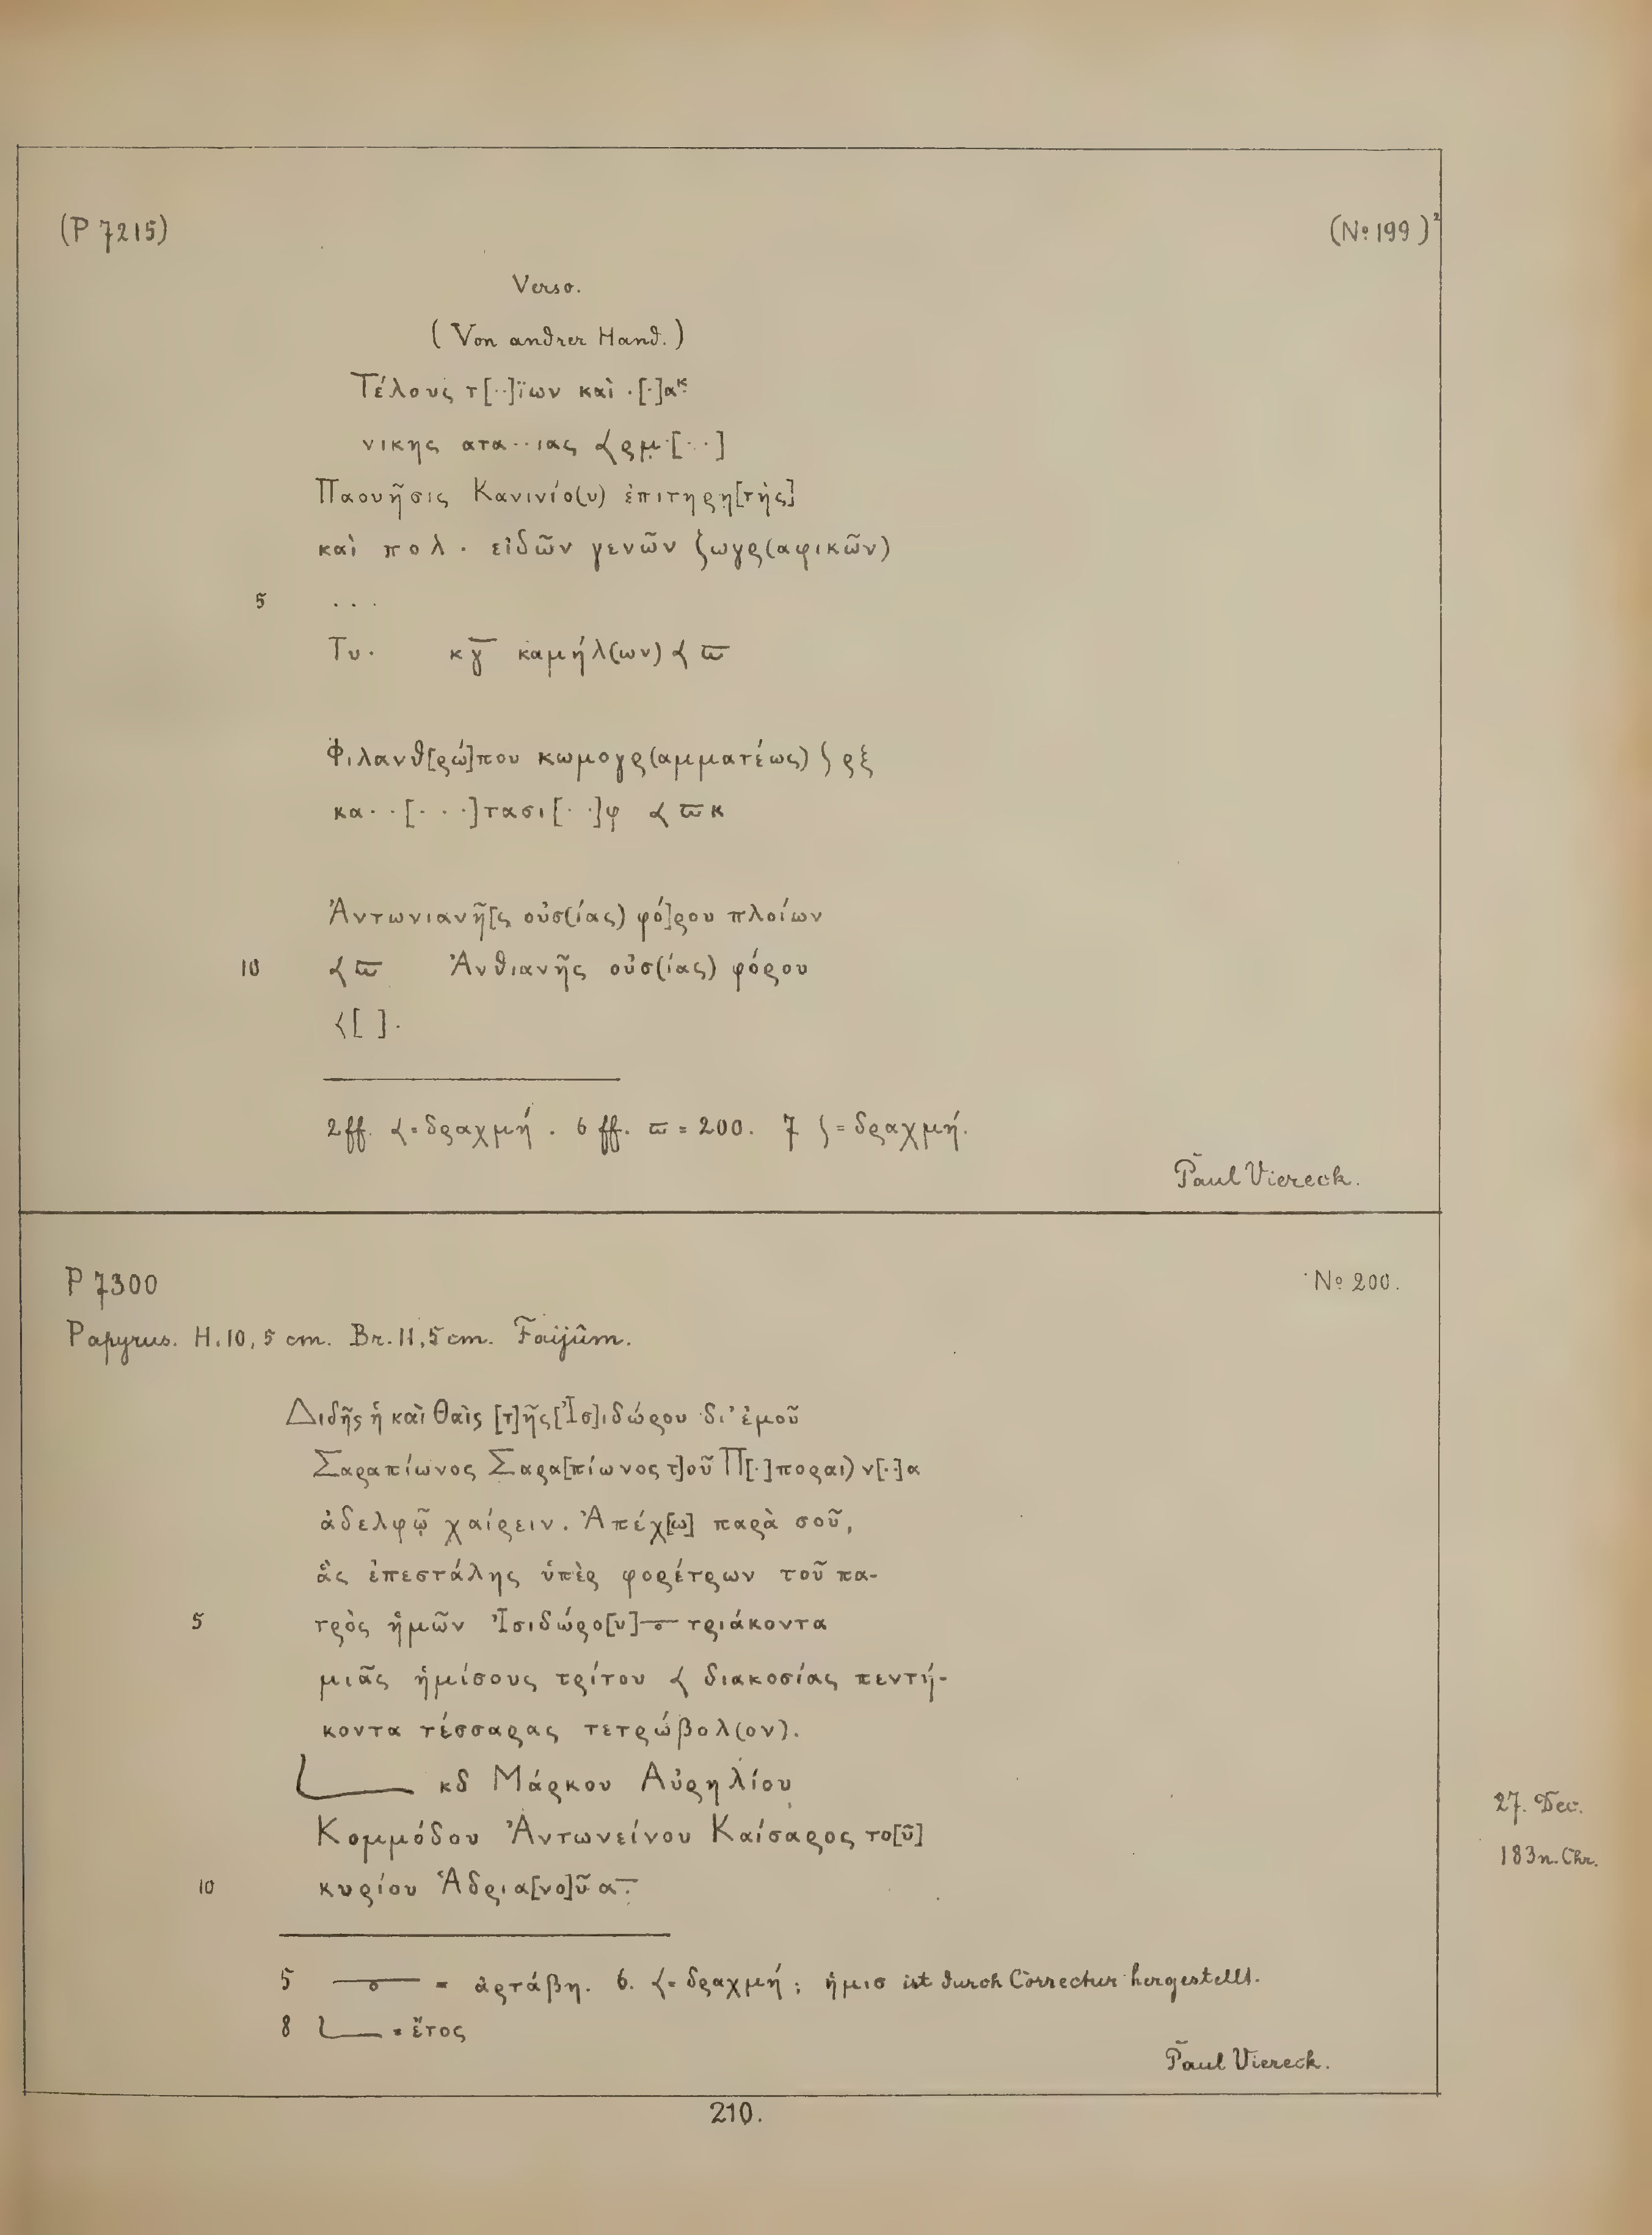 (P 7215)
(No 199)²
Verso.
(Von andrer Hand.)
Τέλους τ[··]ϊων καὶ ·[·]ακ
νικης ατα··ιας 𐅻 ρμ·[··]
Παουῆσις Κανινίο(υ) ἐπιτηρη[τὴς]
καὶ πολ· εἰδῶν γενῶν ζωγρ(αφικῶν)
5 ...
Τυ· κγ̅ καμήλ(ων) 𐅻 ϖ̅
Φιλανθ[ρώ]που κωμογρ(αμματέως) ʃ ρξ
κα··[···]τασι[··]φ 𐅻 ϖκ
Ἀντωνιανῆ[ς οὐσ(ίας) φό]ρου πλοίων
10 𐅻 ϖ̅ Ἀνθιανῆς οὐσ(ίας) φόρου
𐅻[ ]·
2 ff. 𐅻 = δραχμή. 6 ff. ϖ = 200. 7 ʃ = δραχμή.
Paul Viereck.
P 7300
No 200.
Papyrus. H. 10,5 cm. Br. 11,5 cm. Faijûm.
Διδῆς ἡ καὶ Θαὶς [τ]ῆς [Ἰσ]ιδώρου δι' ἐμοῦ
Σαραπίωνος Σαρα[πίωνος τ]οῦ Π[·]ποραι) ν[··]α
ἀδελφῷ χαίρειν. Ἀπέχ[ω] παρὰ σοῦ,
ἃς ἐπεστάλης ὑπὲρ φορέτρων τοῦ πα-
5 τρὸς ἡμῶν Ἰσιδώρο[υ] ⨪ τριάκοντα
μιᾶς ἡμίσους τρίτου 𐅻 διακοσίας πεντή-
κοντα τέσσαρας τετρώβολ(ον).
𐅹 κδ Μάρκου Αὐρηλίου
Κομμόδου Ἀντωνείνου Καίσαρος το[ῦ]
10 κυρίου Ἁδρια[νο]ῦ α̅·
27. Dec.
183 n. Chr.
5 ⨪ = ἀρτάβη. 6. 𐅻 = δραχμή; ἡμισ ist durch Correctur hergestellt.
8 𐅹 = ἔτος
Paul Viereck.
210.